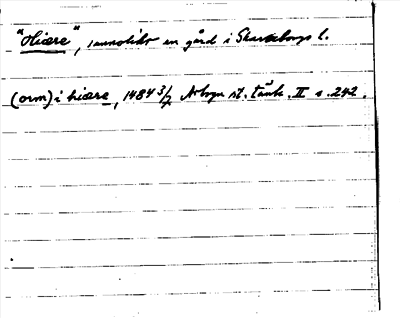 "Hiære", sannolikt en gård i Skaraborgs l.
(orm) i hiære, 1484 3/2 Arboga st. tänk. II s. 242.